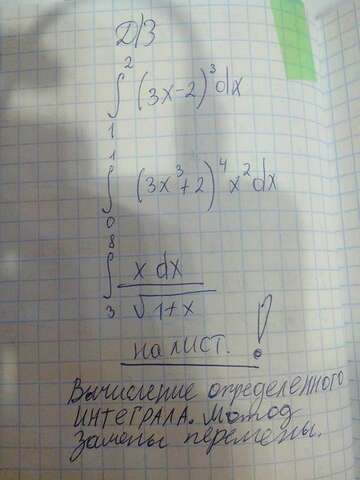 Д/З
∫₁² (3x-2)³dx
∫₀¹ (3x³+2)⁴x²dx
∫₃⁸ x dx / √1+x
на лист. !
Вычисление определенного
интеграла. Мотод
замены перемены.